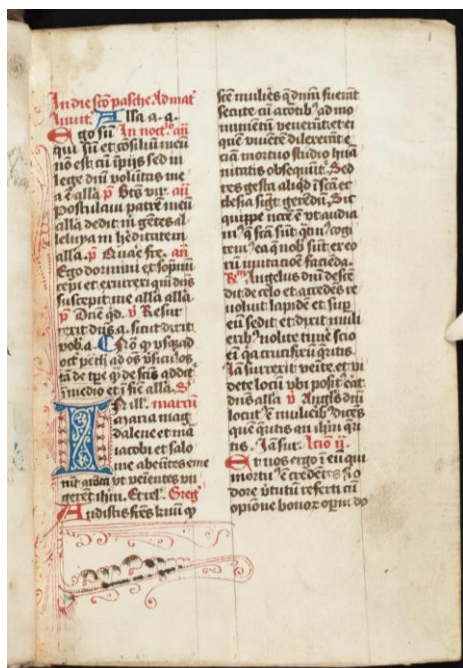 In die sco pasche Ad mat
Inuit. Alla a. a.
Ego sū In noct. añ
qui sū et cōsiliū meū
nō est cū īpijs sed in
lege dni volūtas me
a ē alla p̄ Btūs vir añ
Postulaui patrē meū
alla dedit m̄ gētes al
leluya in hēditatem
alla. p̄ Quare fre. añ
Ego dormiui et sopnū
cepi et exurexi qm̄ dns
suscepit me alla alla
p̄ Dnē qd. v̄ Resur
rexit dns a. sicut dixit
vob. a.
oct ad os
ī medio et ī fīe alla.
In ill. marcū
Maria mag
dalene et ma
iacobi et salo
me abeūtes eme
rūt aroāta ut veientes vn
gerēt ihm. Et rel. Greg
Audistis frēs kmi qp
scē muliēs q dnm̄ fuerāt
secute cū arōtib' ad mo
numētū venerūt. et ei
quē viuētē dilexerāt e
ciā mortuo studio huā
nitatis obsequūt. Sed
res gesta aliqd ī scā ec
clesia sigt gerēdū. Sic
quippe ncē ē vt audia
m' q scā sūt qtin' cogi
tem' ea q nob sūt ex eo
rū imitacōe faciēda.
Angelus dni descē
dit de celo et accedēs re
voluit lapidē et sup
eū sedit et dixit muli
erib' nolite timē scio
ei qa crucifixū qritis.
Ia surrexit veite et vi
dete locū vbi posit' eat
dns alla v̄ Angls dni
locut' ē mulieib' dices
quē qritis an ihm qri
tis. Ia sur. lcio ij.
Et nos ergo ī eū qui
mortu' ē credētes si o
dore v̄tutū referti cū
opiōne bonor opm do